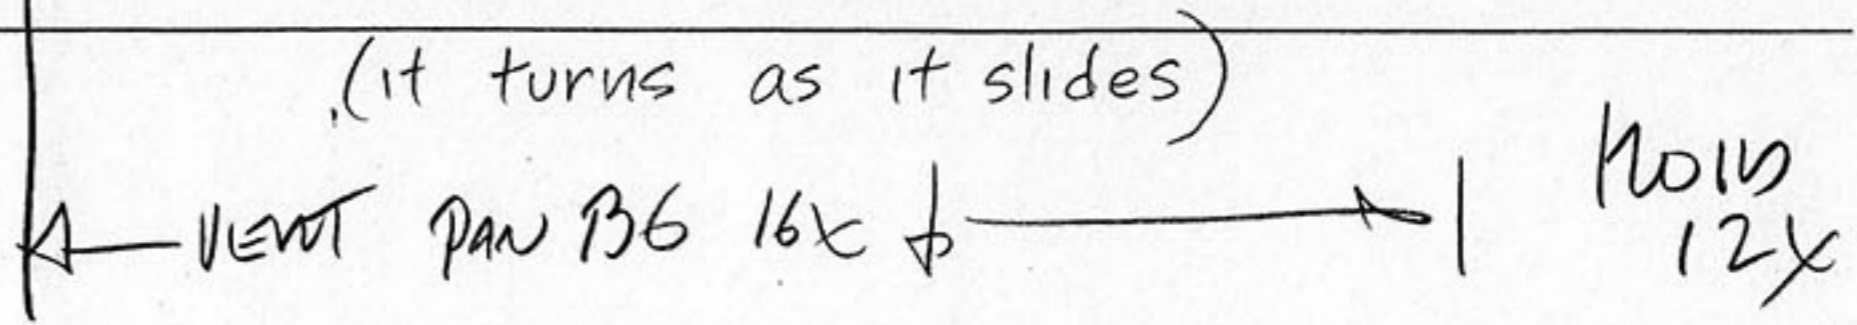 (it turns as it slides)
VERT PAN BG 16X
HOLD
12X